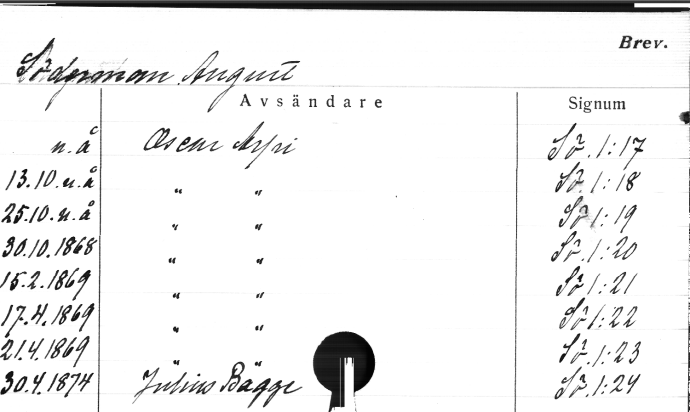 Brev.
Söderman August
Avsändare Signum
u.å Oscar Arpi Sö. 1:17
13.10.u.å " " Sö. 1:18
25.10.u.å " " Sö 1:19
30.10.1868 " " Sö. 1:20
15.2.1869 " " Sö 1:21
17.4.1869 " " Sö 1:22
21.4.1869 " " Sö. 1:23
30.4.1874 Julius Bagge Sö. 1:24